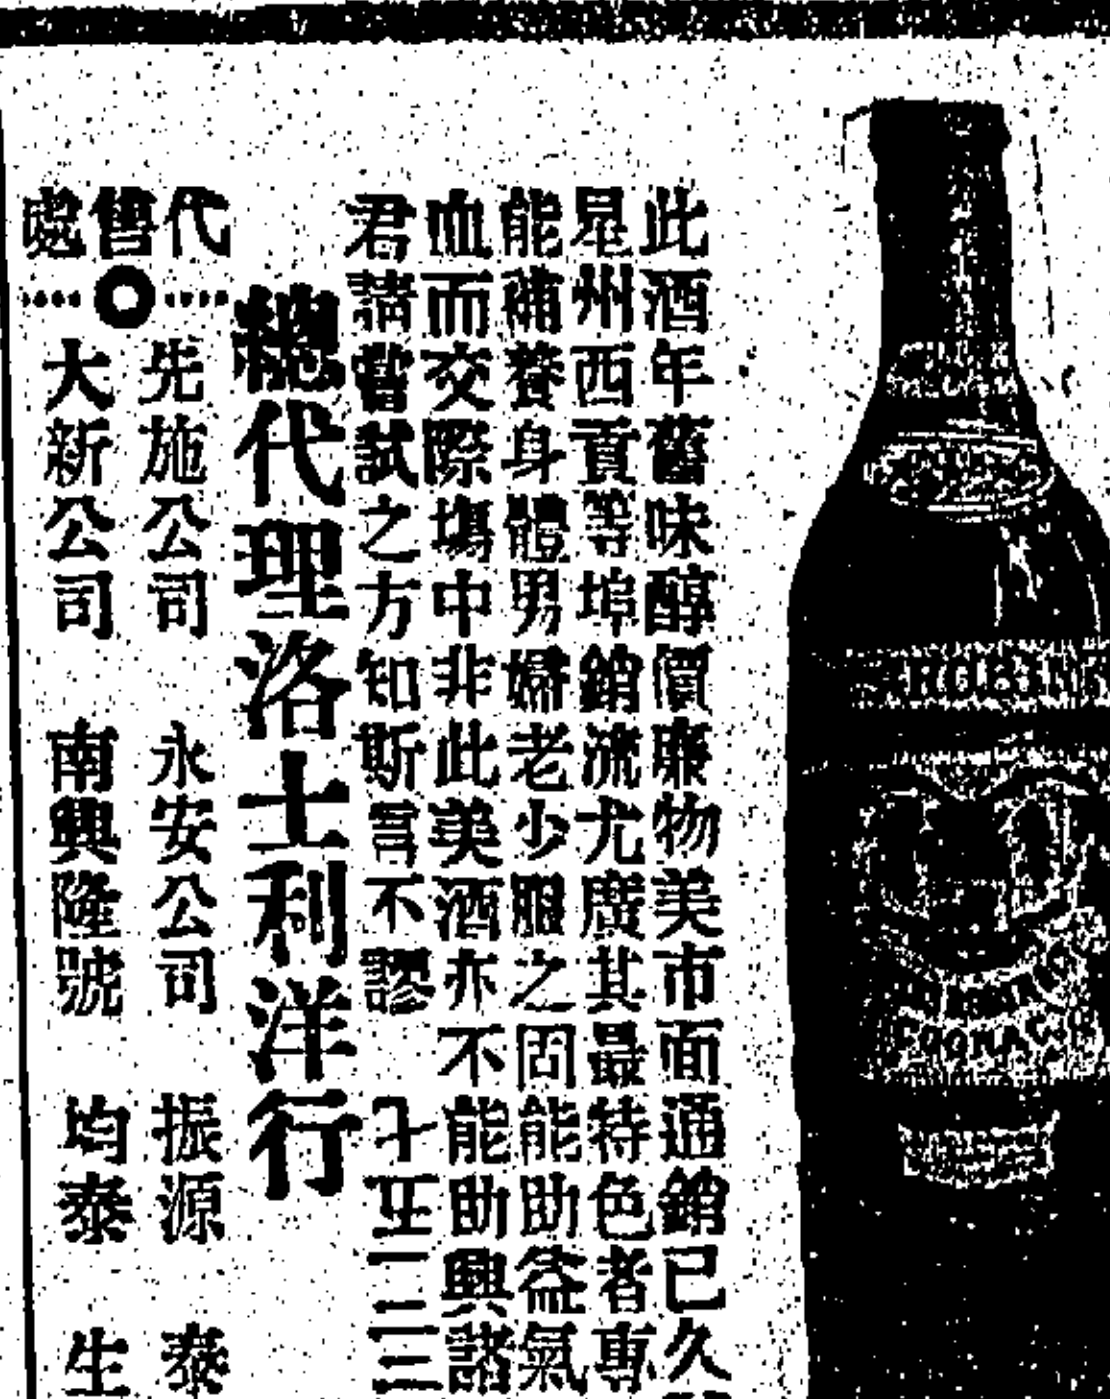 此酒年舊味醇價廉物美市面通銷已久
星州西貢等埠銷流尤廣其最特色者專
能補養身體男婦老少服之固能助益氣
血而交際塲中非此美酒亦不能助興諸
君請嘗試之方知斯言不謬
總代理洛士利洋行
代售處
先施公司 永安公司 振源 泰
大新公司 南興隆號 均泰 生
ROBIN
COGNAC